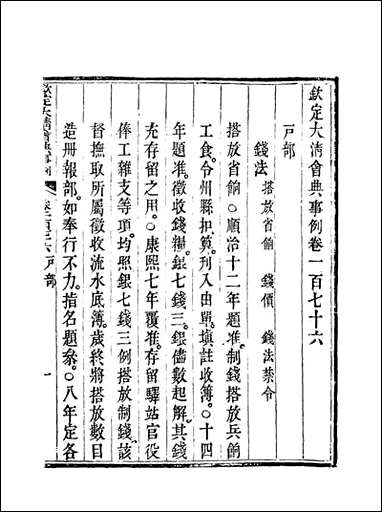 欽定大清會典事例卷一百七十六
戶部
錢法 搭放省餉 錢價 錢法禁令
搭放省餉○順治十二年題准制錢搭放兵餉
工食。令州縣扣算。刋入由單。塡註收簿。○十四
年題准。徵收錢糧。銀七錢三。銀儘數起解。其錢
充存留之用。○康熙七年覆准。存留驛站官役
俸工雜支等項。均照銀七錢三例搭放制錢。該
督撫取所屬徵收流水底簿。歲終將搭放數目
造冊報部。如奉行不力。指名題參。○八年定各
戶部
一